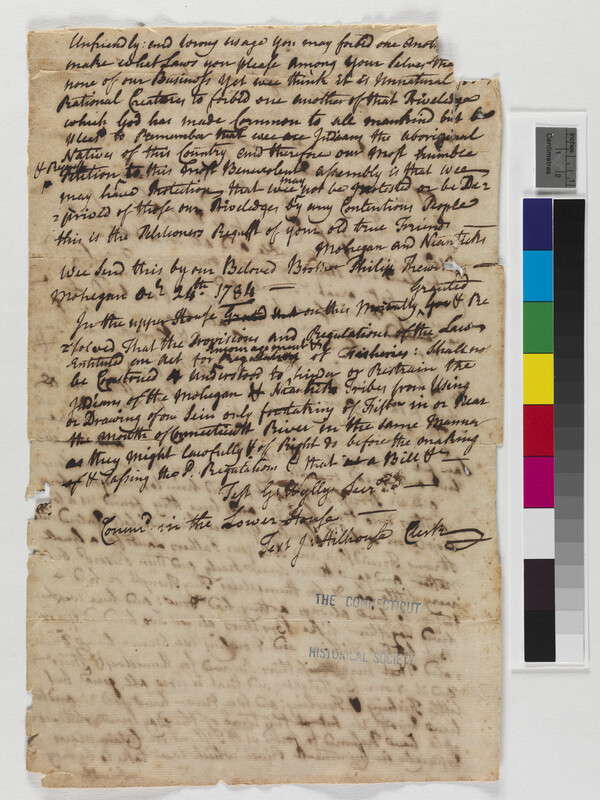 Unfriendly: and Wrong usage you may forbid one Anoth
make what Laws you please among your Selves tha
none of our Business, Yet wee think it is Unnatural for
Rational Creatures to forbid one another of that Priveledge
which God has made Common to all mankind but be
Pleasd to Remember that wee are Indians the aboriginal
Natives of this Country and therefore our most humble
& Request
Petition to this most Benevolent assembly is that wee
may
may have Protection, that wee not be Molested or be De-
=prived of those our Priveledges by any Contentious People
this is the Petitioners Request of your old true Friends
Mohegan and Nianticks
Wee Send this by our Beloved Brother Philip
Mohegan Octr 24th 1784 —
Granted
In the upper House on this Memorial, & Re
=solved That the Provisions and Regulations of the Law
Encouragement &c
Entitled an Act for Regulating of Fisheries: Shall no
be Construed or Understood to hinder or Restrain the
Indians of the Mohegan & Niantick Tribes from Using
or Drawing of one Sein only for taking of Fish in or Near
the mouth of Connecticutt River in the Same Manner
as they might Lawfully & of Right do before the making
of & Passing the sd. Regulations & that a Bill &c —
Test G: Wyllys Secry —
Concurd. in the Lower House —
Test J: Hilhouse Clerk
THE CONNECTICUT
HISTORICAL SOCIETY
inches
Centimetres